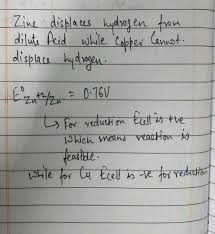 Zinc displaces hydrogen from
dilute Acid while Copper Cannot
displace hydrogen.
E⁰ Zn⁺²/Zn = 0.76V
↳ For reduction Ecell is +ve
which means reaction is
feasible.
while for Cu Ecell is -ve for reduction